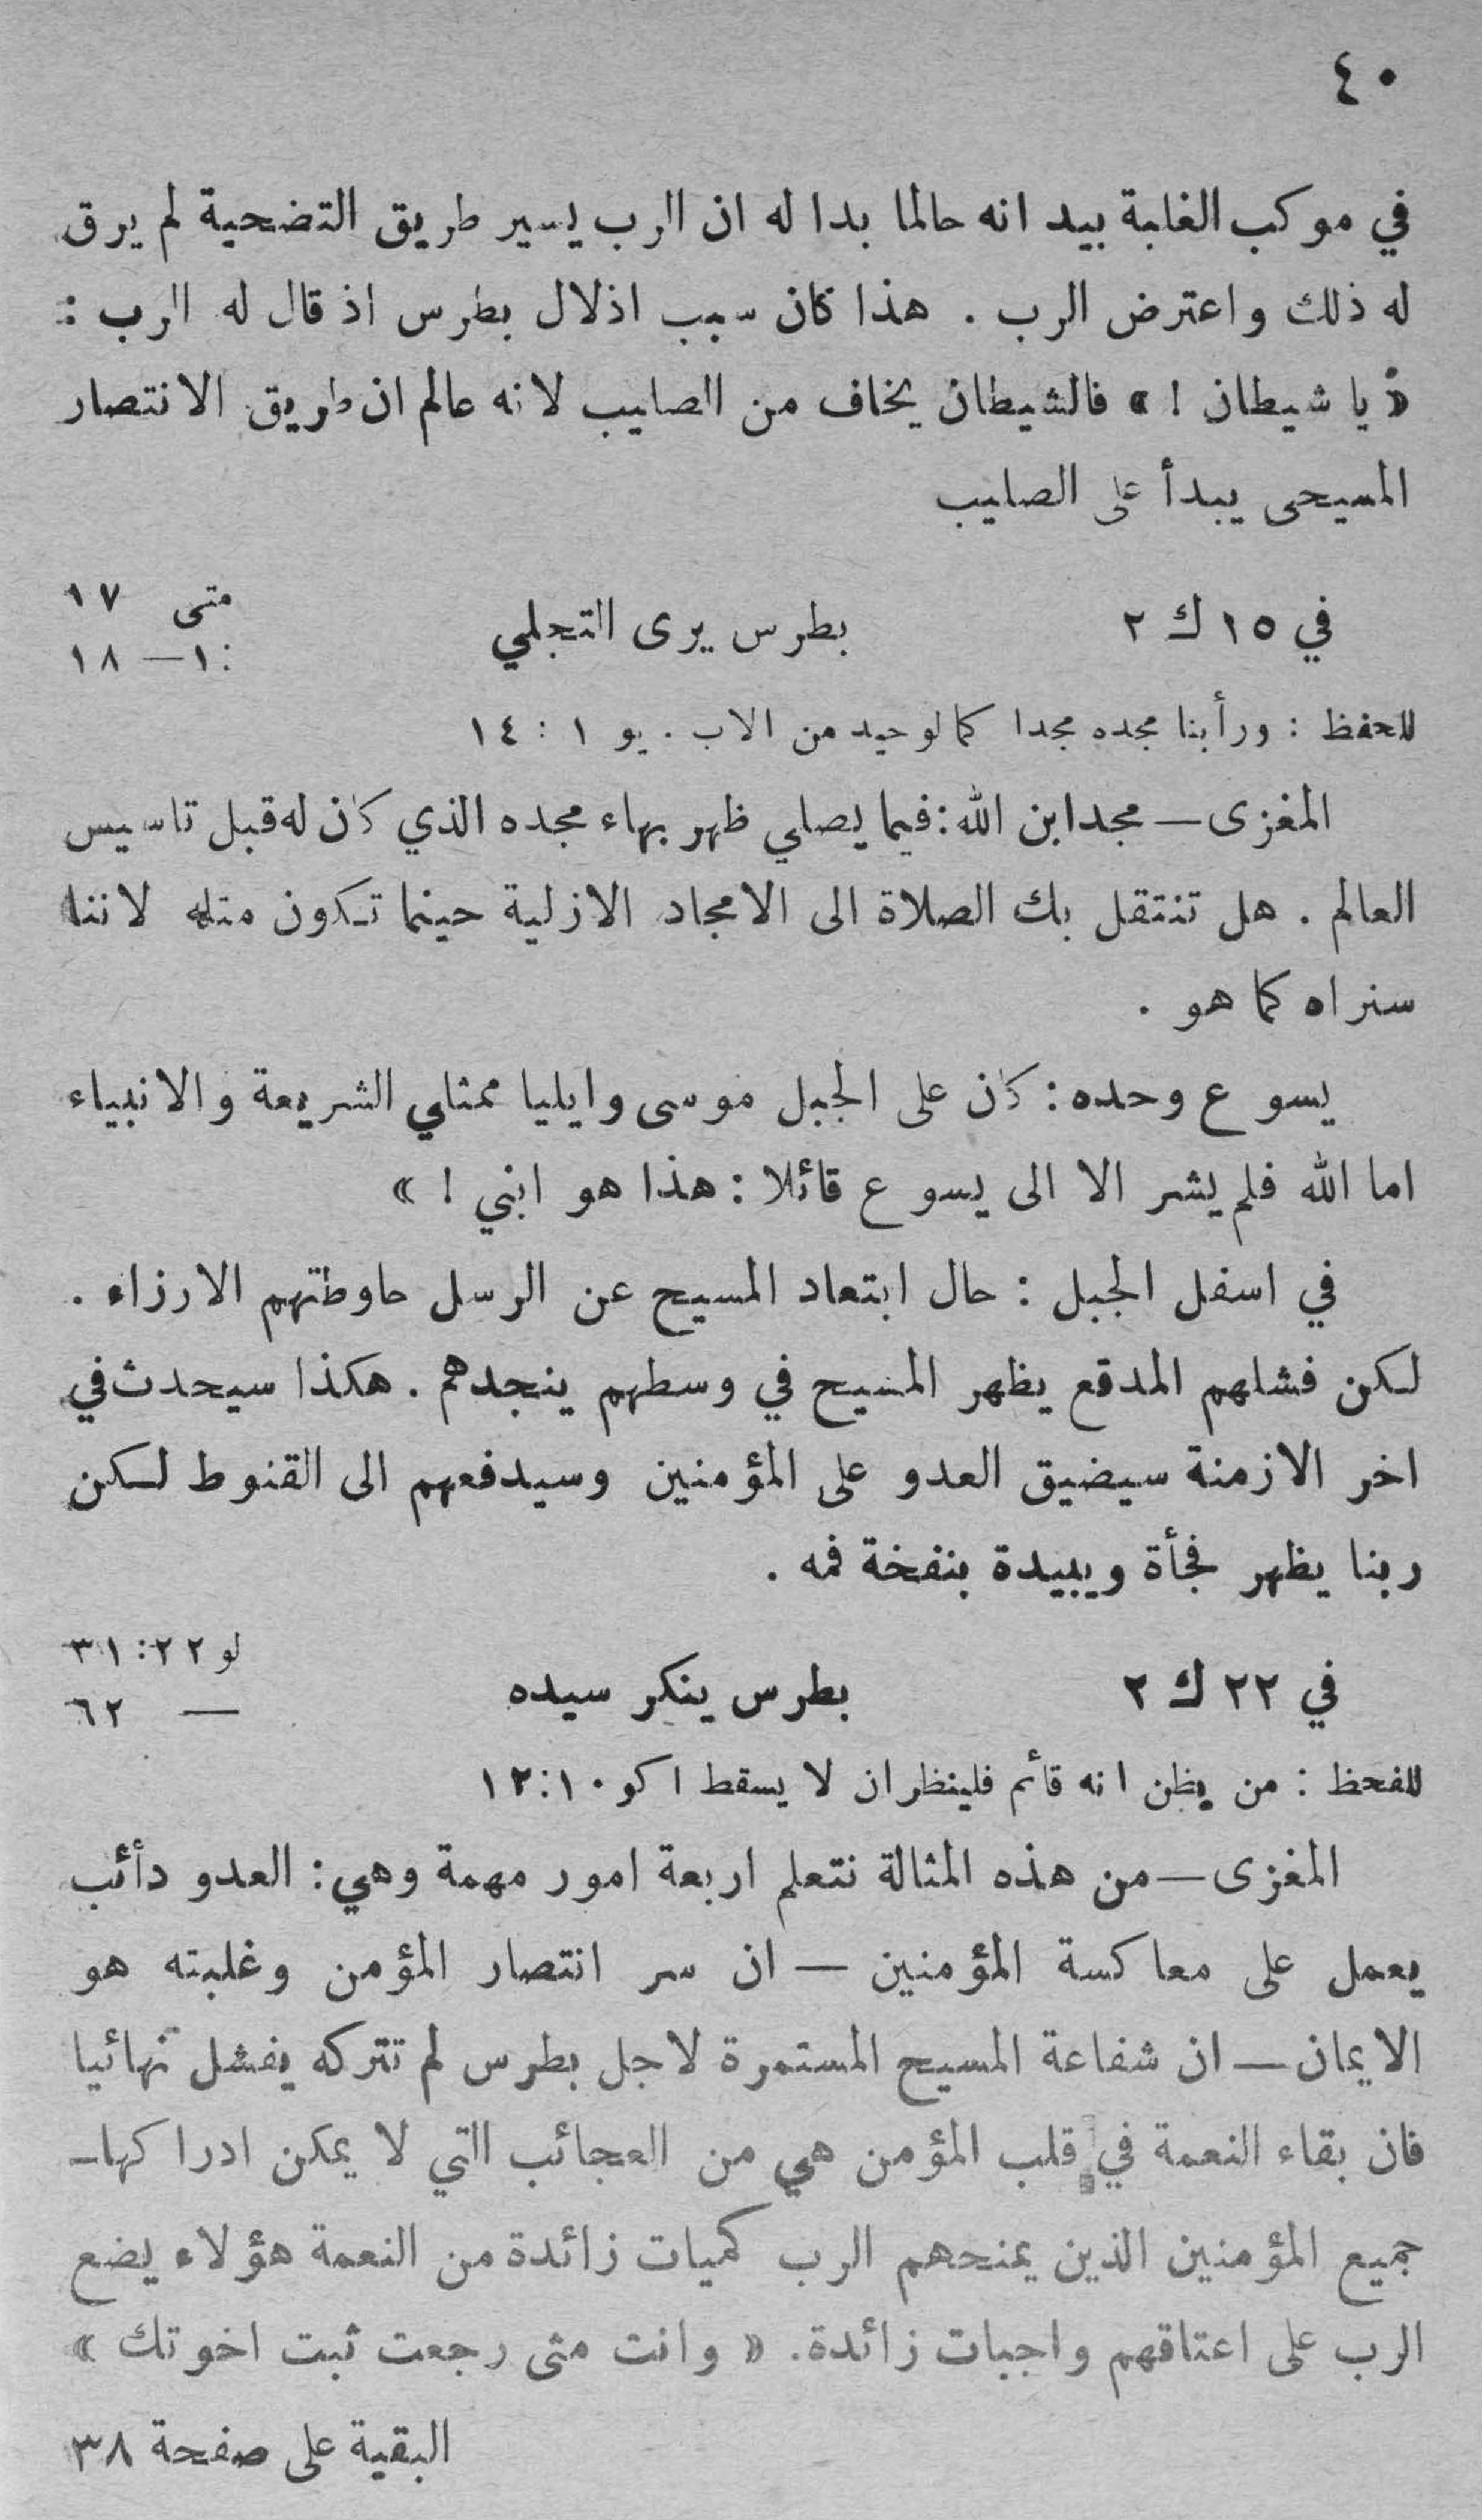 ٤٠
في موكب الغلبة بيد انه حالما بدا له ان الرب يسير طريق التضحية لم يرق
له ذلك واعترض الرب . هذا كان سبب اذلال بطرس اذ قال له الرب :
« يا شيطان ! » فالشيطان يخاف من الصليب لانه عالم ان طريق الانتصار
المسيحى يبدأ على الصليب
في ١٥ ك ٢ بطرس يرى التجلي متى ١٧
:١— ١٨
للحفظ : ورأينا مجده مجدا كما لوحيد من الاب . يو ١ : ١٤
المغزى — مجد ابن الله : فيما يصلي ظهر بهاء مجده الذي كان له قبل تاسيس
العالم . هل تنتقل بك الصلاة الى الامجاد الازلية حينما تكون مثله لاننا
سنراه كما هو .
يسوع وحده : كان على الجبل موسى وايليا ممثلي الشريعة والانبياء
اما الله فلم يشر الا الى يسوع قائلا : هذا هو ابني ! »
في اسفل الجبل : حال ابتعاد المسيح عن الرسل حاوطتهم الارزاء .
لكن فشلهم المدقع يظهر المسيح في وسطهم ينجدهم . هكذا سيحدث في
اخر الازمنة سيضيق العدو على المؤمنين وسيدفعهم الى القنوط لكن
ربنا يظهر فجأة ويبيدة بنفخة فمه .
في ٢٢ ك ٢ بطرس ينكر سيده لو ٢٢ : ٣١
— ٦٢
للفحظ : من يظن انه قائم فلينظر ان لا يسقط ا كو ١٠ : ١٢
المغزى — من هذه المثالة نتعلم اربعة امور مهمة وهي : العدو دأئب
يعمل على معاكسة المؤمنين — ان سر انتصار المؤمن وغلبته هو
الايمان — ان شفاعة المسيح المستمرة لاجل بطرس لم تتركه يفشل نهائيا
فان بقاء النعمة في قلب المؤمن هي من العجائب التي لا يمكن ادراكها —
جميع المؤمنين الذين يمنحهم الرب كميات زائدة من النعمة هؤلاء يضع
الرب على اعتاقهم واجبات زائدة . « وانت متى رجعت ثبت اخوتك »
البقية على صفحة ٣٨